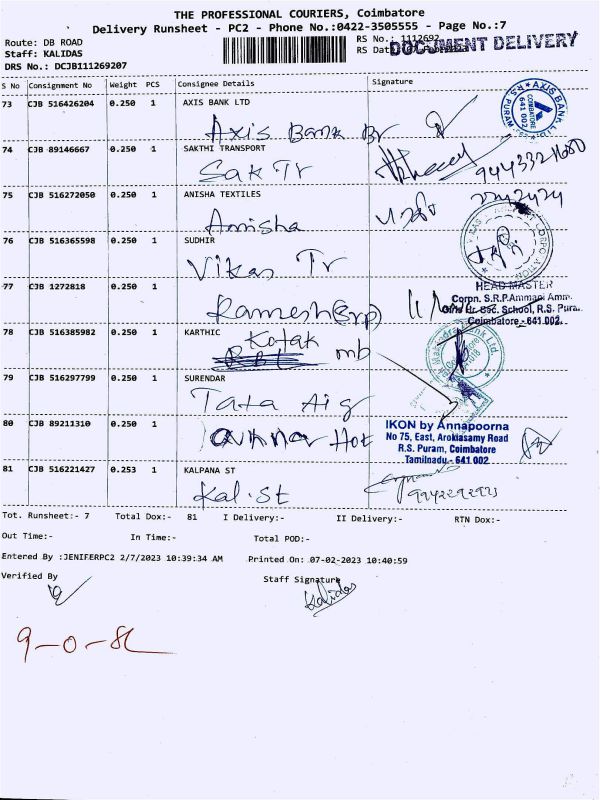 THE PROFESSIONAL COURIERS, Coimbatore
Delivery Runsheet - PC2 - Phone No.:0422-3505555 - Page No.:7
Route: DB ROAD
Staff: KALIDAS
DRS No.: DCJB111269207
RS No.: 1112692
RS Dat
DOCUMENT DELIVERY
S No Consignment No Weight PCS Consignee Details Signature
73 CJB 516426204 0.250 1 AXIS BANK LTD
Axis Bank Br
AXIS BANK LTD. R.S. PURAM COIMBATORE 641 002
74 CJB 89146667 0.250 1 SAKTHI TRANSPORT
Sak Tr
75 CJB 516272050 0.250 1 ANISHA TEXTILES
Anisha
76 CJB 516365598 0.250 1 SUDHIR
Vikas Tr
77 CJB 1272818 0.250 1
Ramesh (Srp)
HEAD MASTER
Corpn. S.R.P.Ammani Amm.
Girls Hr. Sec. School, R.S. Pura.
Coimbatore - 641 002.
78 CJB 516385982 0.250 1 KARTHIC
Kotak mb
79 CJB 516297799 0.250 1 SURENDAR
Tata Aig
80 CJB 89211310 0.250 1
Hot
IKON by Annapoorna
No 75, East, Arokiasamy Road
R.S. Puram, Coimbatore
Tamilnadu - 641 002
81 CJB 516221427 0.253 1 KALPANA ST
Kal. St
Tot. Runsheet:- 7 Total Dox:- 81 I Delivery:- II Delivery:- RTN Dox:-
Out Time:- In Time:- Total POD:-
Entered By :JENIFERPC2 2/7/2023 10:39:34 AM Printed On: 07-02-2023 10:40:59
Verified By Staff Signature
Kalidas